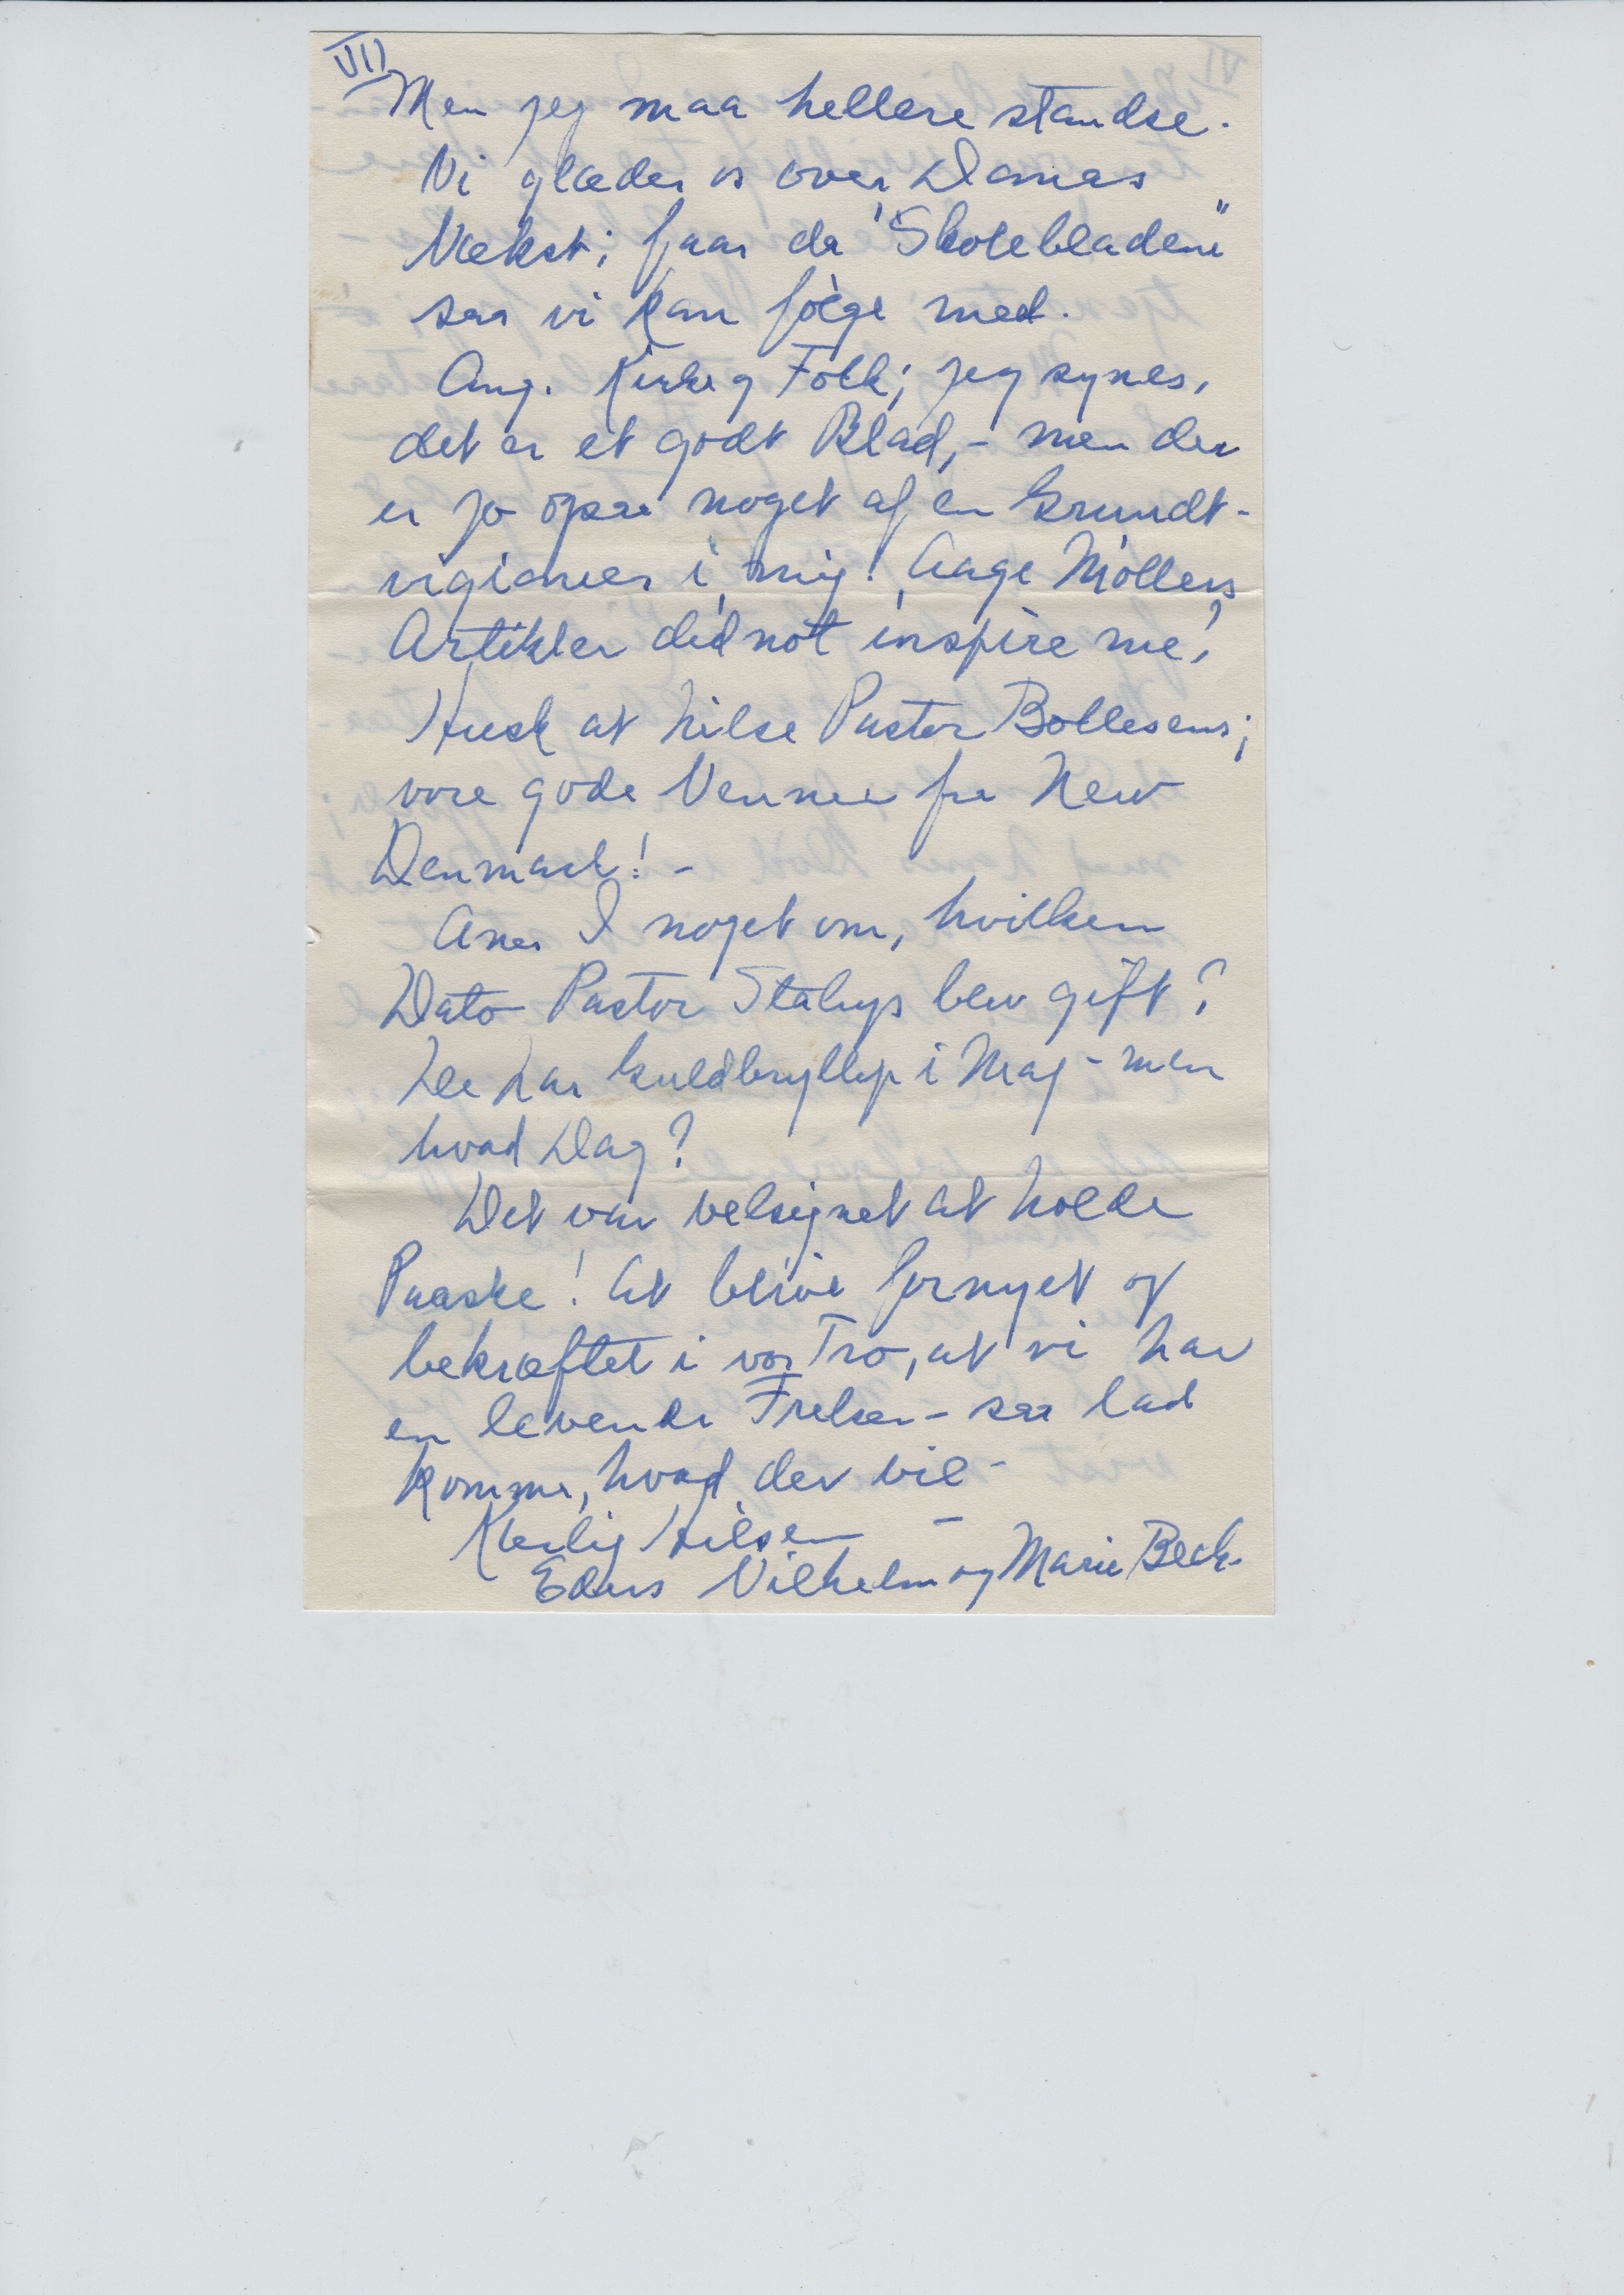 VII
Men jeg maa hellere standse.
Vi glæder os over Danas
Vækst; faar da "Skolebladene"
saa vi kan følge med.
Ang. Kirke og Folk; jeg synes,
det er et godt Blad, - men der
er jo ogsaa noget af en Grundt-
vigianer i mig! Aage Møllers
Artikler did not inspire me!
Husk at hilse Pastor Bollesens;
vore gode Venner fra New
Denmark! -
Aner I noget om, hvilken
Dato Pastor blev gift?
De har Guldbryllup i Maj - men
hvad Dag?
Det var velsignet at holde
Paaske! At blive fornyet og
bekræftet i vor Tro, at vi har
en levende Frelser - saa lad
komme, hvad der vil -
Kærlig Hilsen -
Eders Vilhelm og Marie Beck.